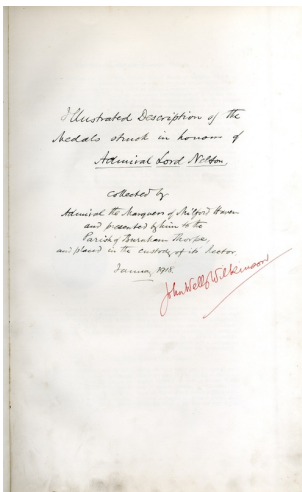 Illustrated Description of the
Medals struck in honour of
Admiral Lord Nelson,
collected by
Admiral the Marquess of Milford Haven
and presented by him to the
Parish of Burnham Thorpe,
and placed in the custody of its Rector.
January 1918.
John Wells Wilkinson